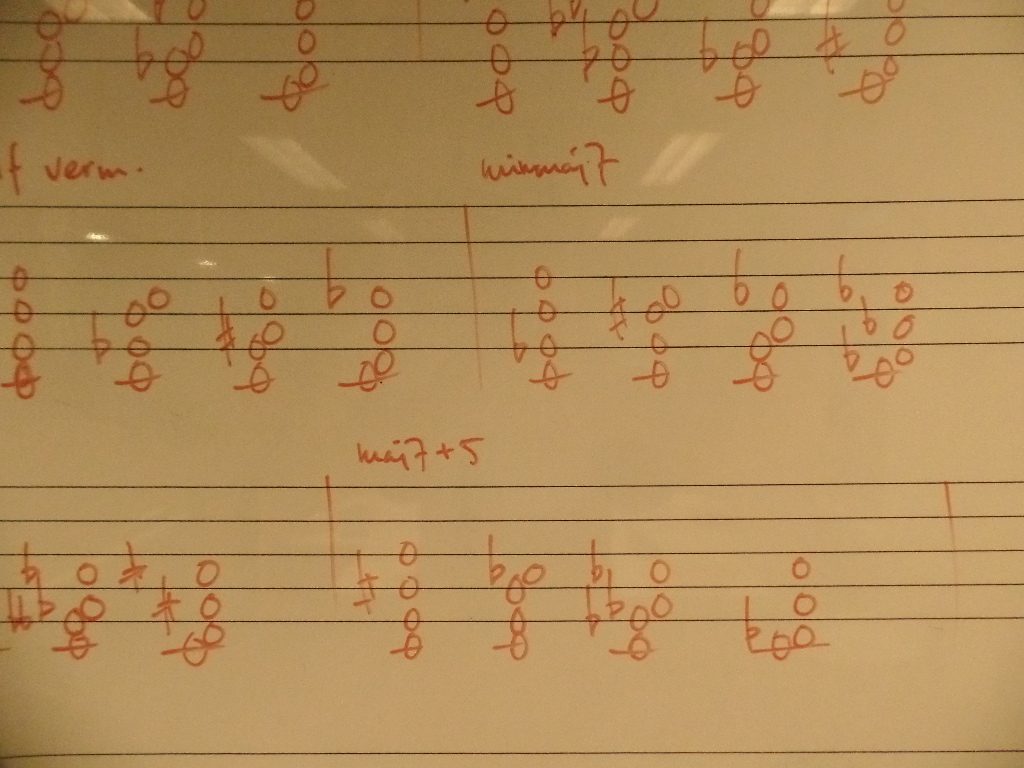 f verm.
minmaj7
maj7+5